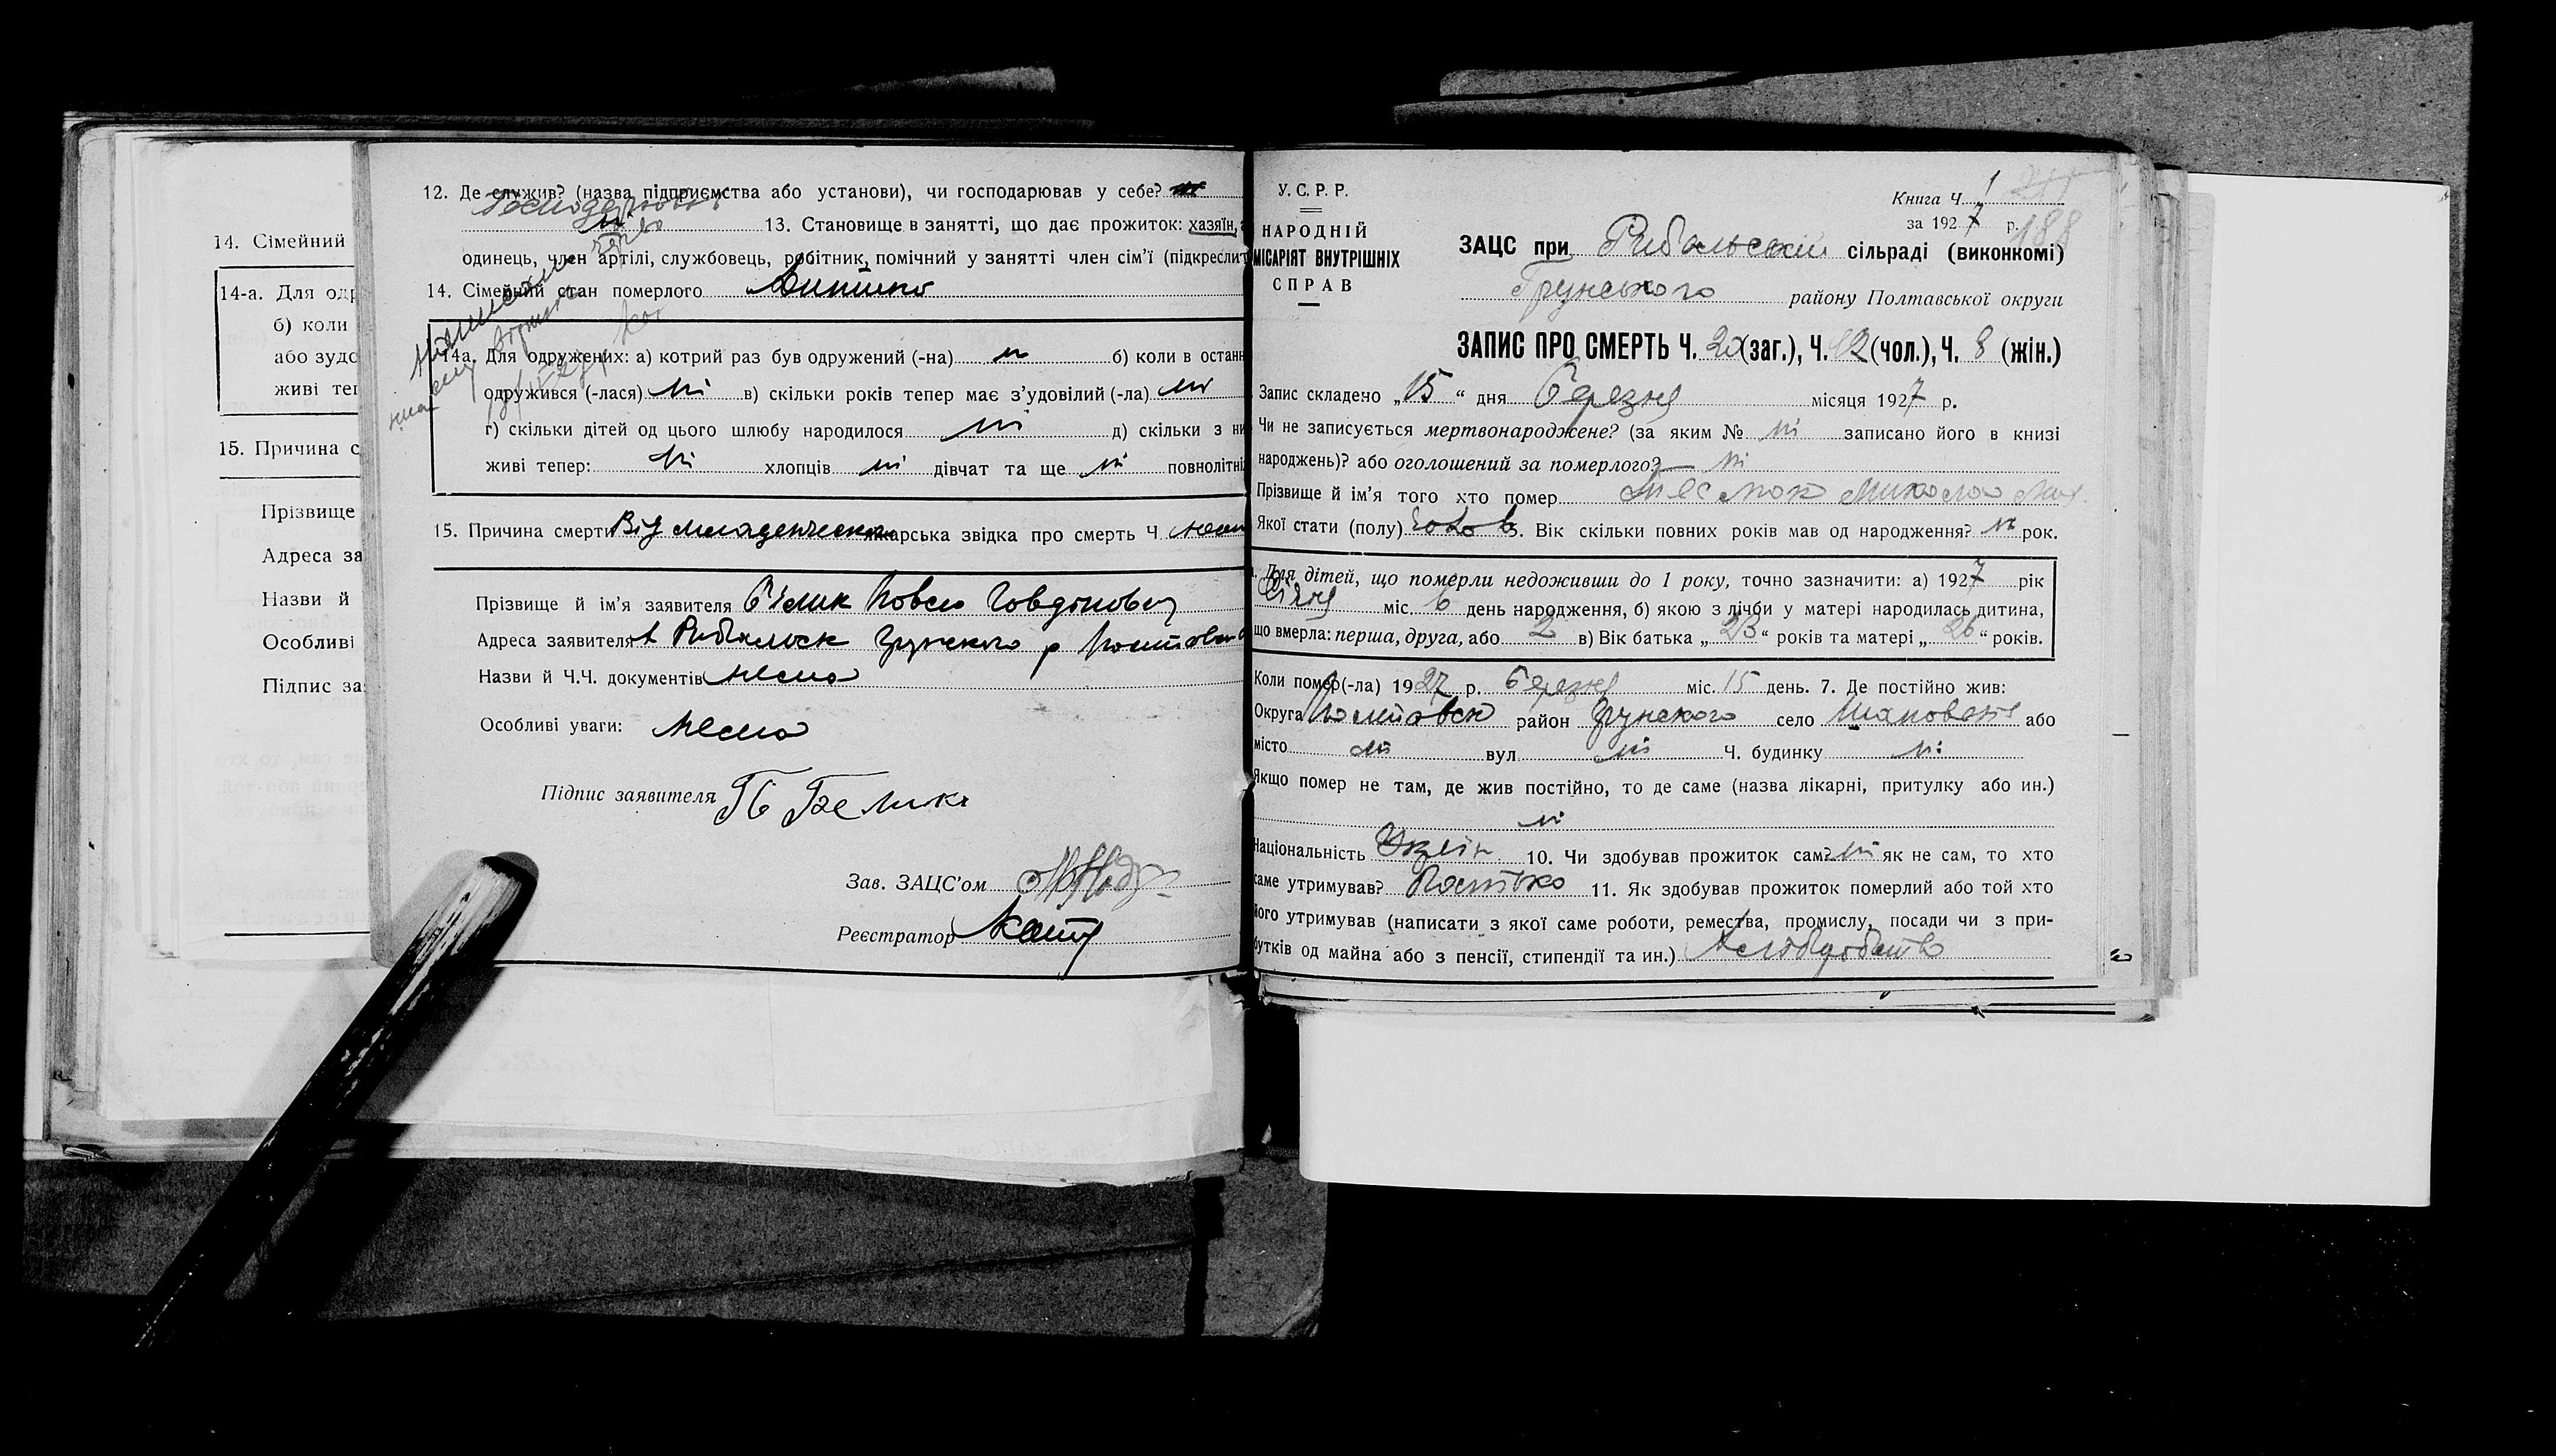 14. Сімейний
14-а. Для одр
б) коли
або зудо
живі теп
15. Причина с
Прізвище
Адреса за
Назви й
Особливі
Підпис за
12. Де служив? (назва підприємства або установи), чи господарював у себе?
13. Становище в занятті, що дає прожиток: хазяїн,
одинець, член артілі, службовець, робітник, помічний у занятті член сім'ї (підкреслит
14. Сімейний стан померлого Дитина
14а. Для одружених: а) котрий раз був одружений (-на) ні б) коли в останн
одружився (-лася) ні в) скільки років тепер має з'удовілий (-ла) ні
г) скільки дітей од цього шлюбу народилося ні д) скільки з ни
живі тепер: ні хлопців ні дівчат та ще ні повнолітні
15. Причина смерти Від младенческ карська звідка про смерть Ч
Прізвище й ім'я заявителя Білик Павло
Адреса заявителя Рибальск Грунского р Полтавс
Назви й Ч.Ч. документів нема
Особливі уваги: Нема
Підпис заявителя П Белик
Зав. ЗАЦС'ом
Реєстратор
У. С. Р. Р.
НАРОДНІЙ
МІСАРІЯТ ВНУТРІШНІХ
СПРАВ
Книга Ч. 1
за 1927 р.
188
ЗАЦС при Рибальській сільраді (виконкомі)
Грунського району Полтавської округи
ЗАПИС ПРО СМЕРТЬ Ч. 20 (заг.), Ч. 12 (чол.), Ч. 8 (жін.)
Запис складено „15“ дня Березня місяця 1927 р.
Чи не записується мертвонароджене? (за яким № ні записано його в книзі
народжень)? або оголошений за померлого? ні
Прізвище й ім'я того хто помер Микола
Якої стати (полу) чолов 3. Вік скільки повних років мав од народження? ні рок.
Для дітей, що померли недоживши до 1 року, точно зазначити: а) 1927 рік
Січня міс. 6 день народження, б) якою з лічби у матері народилась дитина,
що вмерла: перша, друга, або 2 в) Вік батька „23“ років та матері „26“ років.
Коли помер(-ла) 1927 р. Березня міс. 15 день. 7. Де постійно жив:
Округа Полтавськ район Грунского село або
місто ні вул. ні Ч. будинку ні
Якщо помер не там, де жив постійно, то де саме (назва лікарні, притулку або ин.)
ні
Національність Украін 10. Чи здобував прожиток сам? ні як не сам, то хто
саме утримував? Батько 11. Як здобував прожиток померлий або той хто
його утримував (написати з якої саме роботи, ремества, промислу, посади чи з при-
бутків од майна або з пенсії, стипендії та ин.) Хліборобство